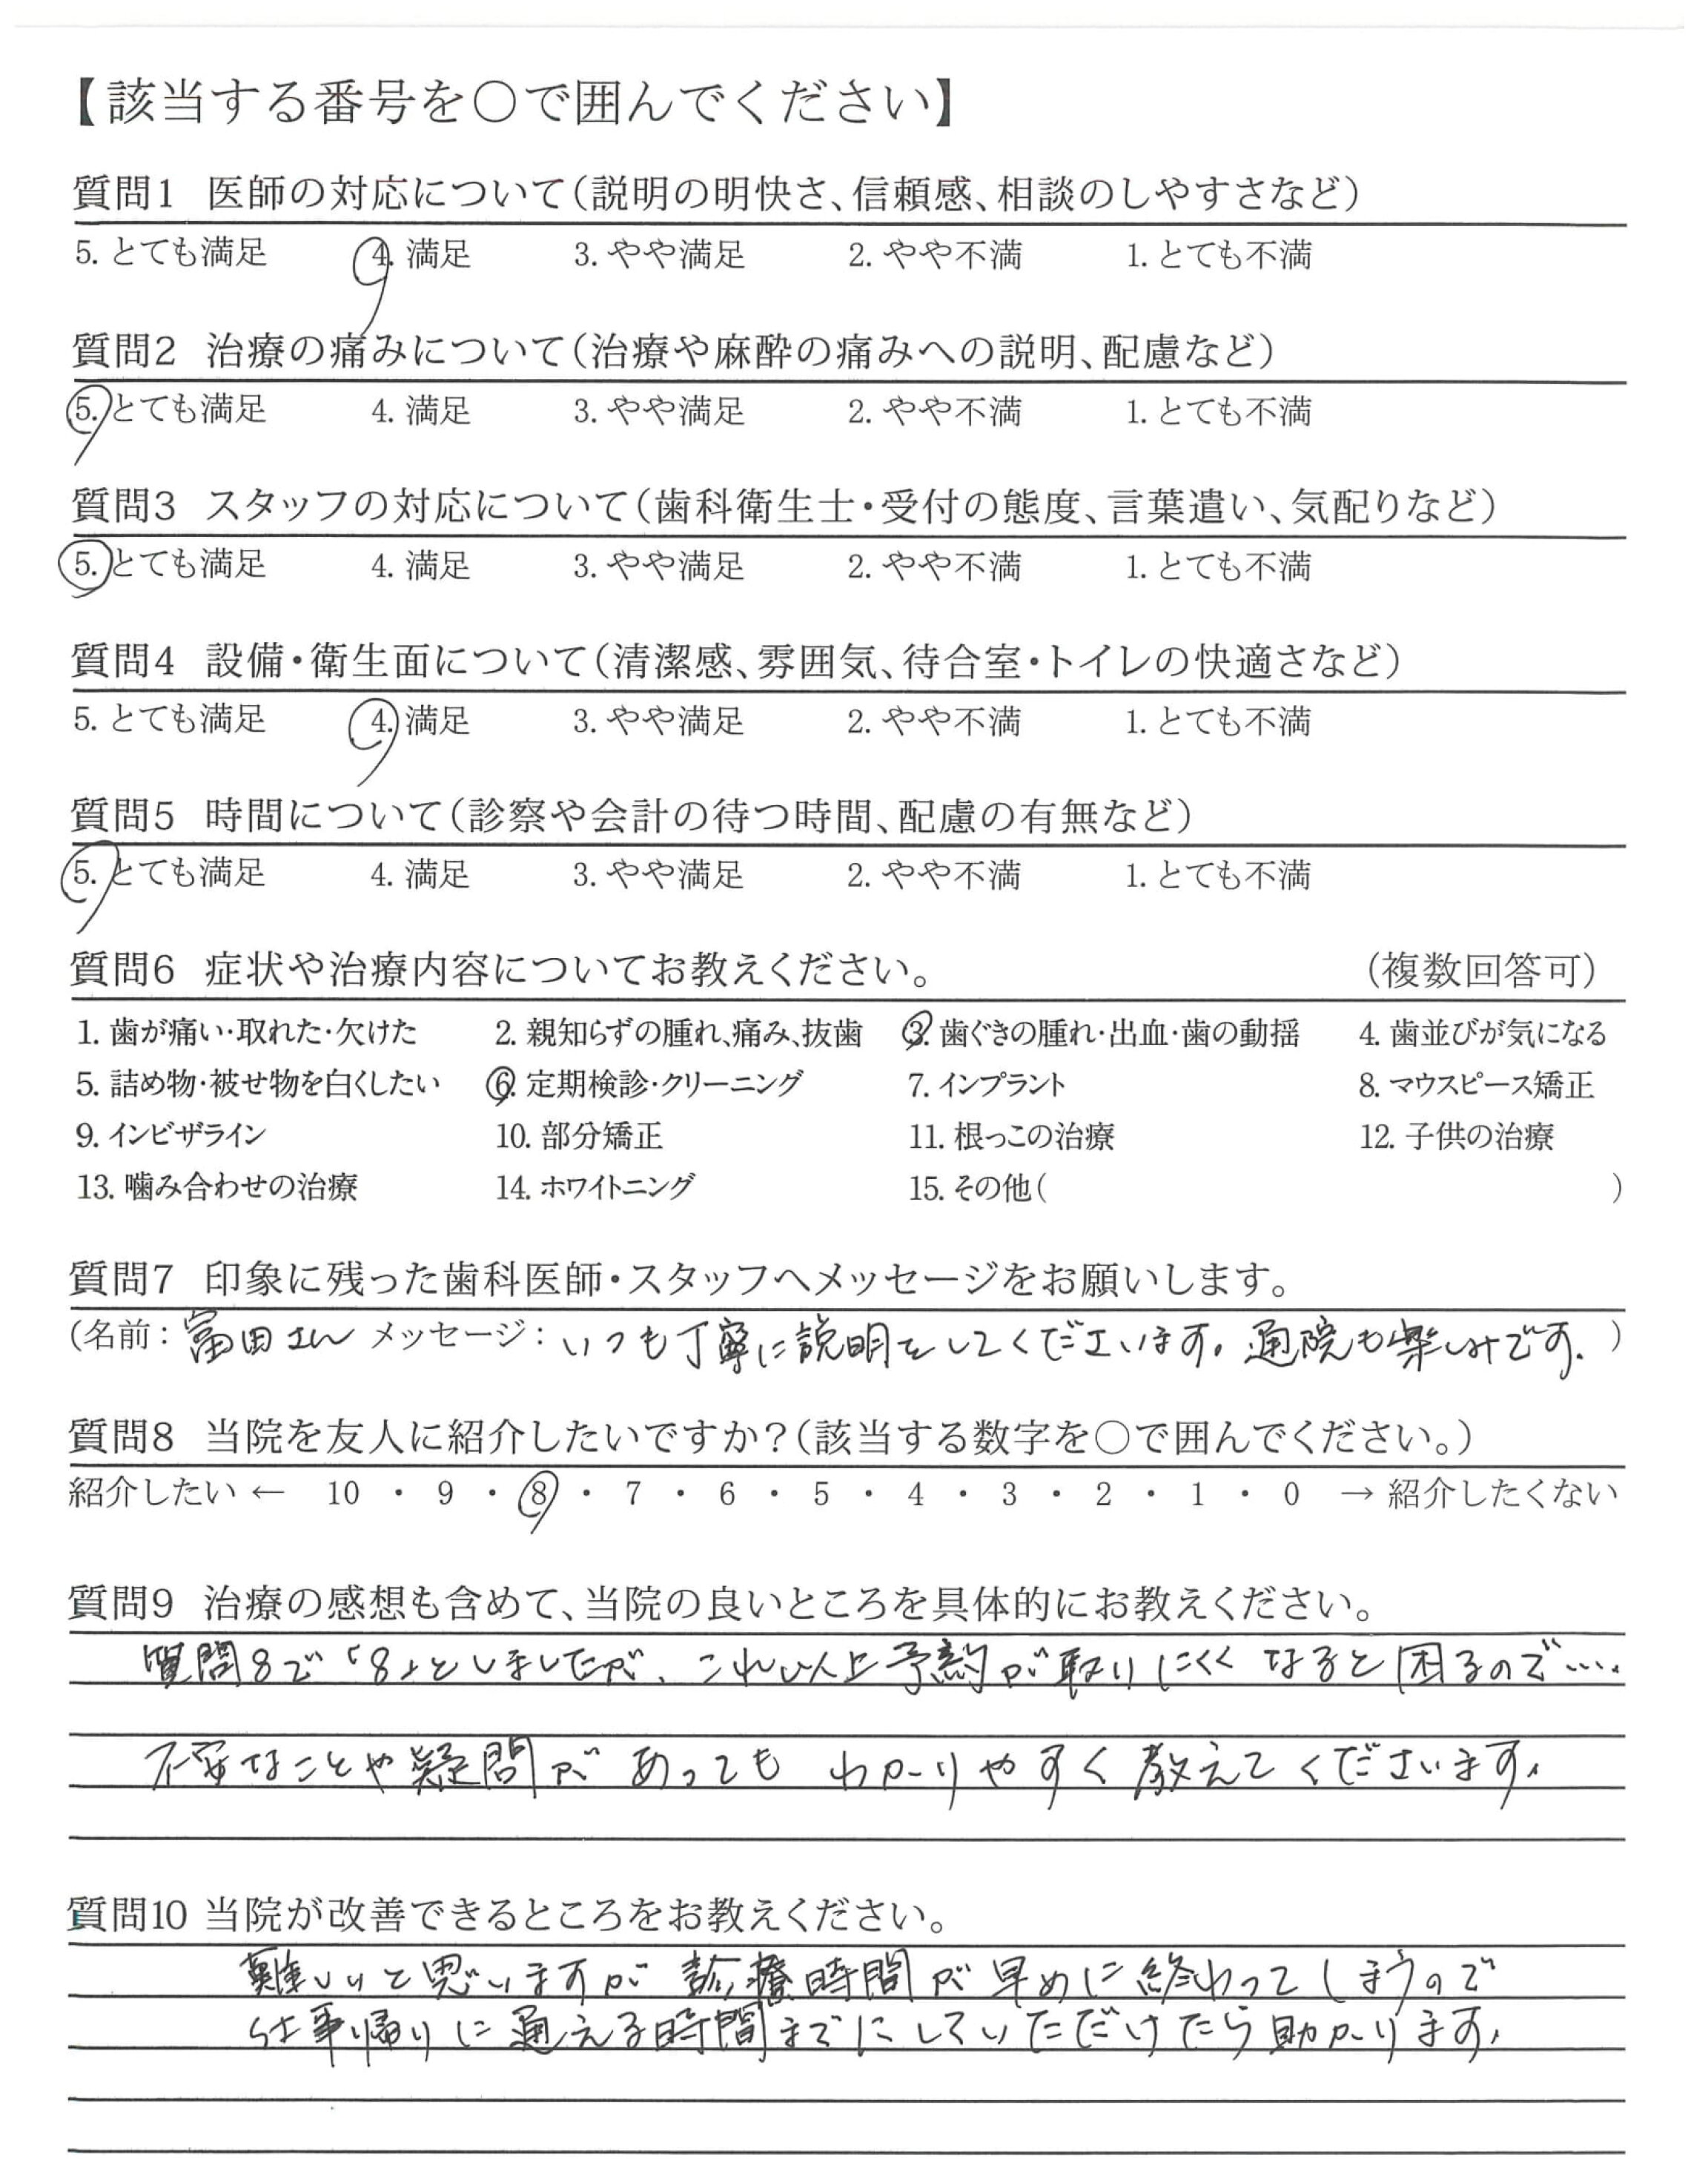 【該当する番号を○で囲んでください】
質問1 医師の対応について(説明の明快さ、信頼感、相談のしやすさなど)
5. とても満足 4. 満足 3. やや満足 2. やや不満 1. とても不満
質問2 治療の痛みについて(治療や麻酔の痛みへの説明、配慮など)
5. とても満足 4. 満足 3. やや満足 2. やや不満 1. とても不満
質問3 スタッフの対応について(歯科衛生士・受付の態度、言葉遣い、気配りなど)
5. とても満足 4. 満足 3. やや満足 2. やや不満 1. とても不満
質問4 設備・衛生面について(清潔感、雰囲気、待合室・トイレの快適さなど)
5. とても満足 4. 満足 3. やや満足 2. やや不満 1. とても不満
質問5 時間について(診察や会計の待つ時間、配慮の有無など)
5. とても満足 4. 満足 3. やや満足 2. やや不満 1. とても不満
質問6 症状や治療内容についてお教えください。 (複数回答可)
1. 歯が痛い・取れた・欠けた 2. 親知らずの腫れ、痛み、抜歯 3. 歯ぐきの腫れ・出血・歯の動揺 4. 歯並びが気になる
5. 詰め物・被せ物を白くしたい 6. 定期検診・クリーニング 7. インプラント 8. マウスピース矯正
9. インビザライン 10. 部分矯正 11. 根っこの治療 12. 子供の治療
13. 噛み合わせの治療 14. ホワイトニング 15. その他( )
質問7 印象に残った歯科医師・スタッフへメッセージをお願いします。
(名前: 富田さん メッセージ: いつも丁寧に説明をしてくださいます。通院も楽しみです。)
質問8 当院を友人に紹介したいですか?(該当する数字を○で囲んでください。)
紹介したい ← 10 ・ 9 ・ 8 ・ 7 ・ 6 ・ 5 ・ 4 ・ 3 ・ 2 ・ 1 ・ 0 → 紹介したくない
質問9 治療の感想も含めて、当院の良いところを具体的にお教えください。
質問8で「8」としましたが、これ以上予約が取りにくくなると困るので….
不安なことや疑問があってもわかりやすく教えてくださいます。
質問10 当院が改善できるところをお教えください。
難しいと思いますが診療時間が早めに終わってしまうので
仕事帰りに通える時間までにしていただけたら助かります。